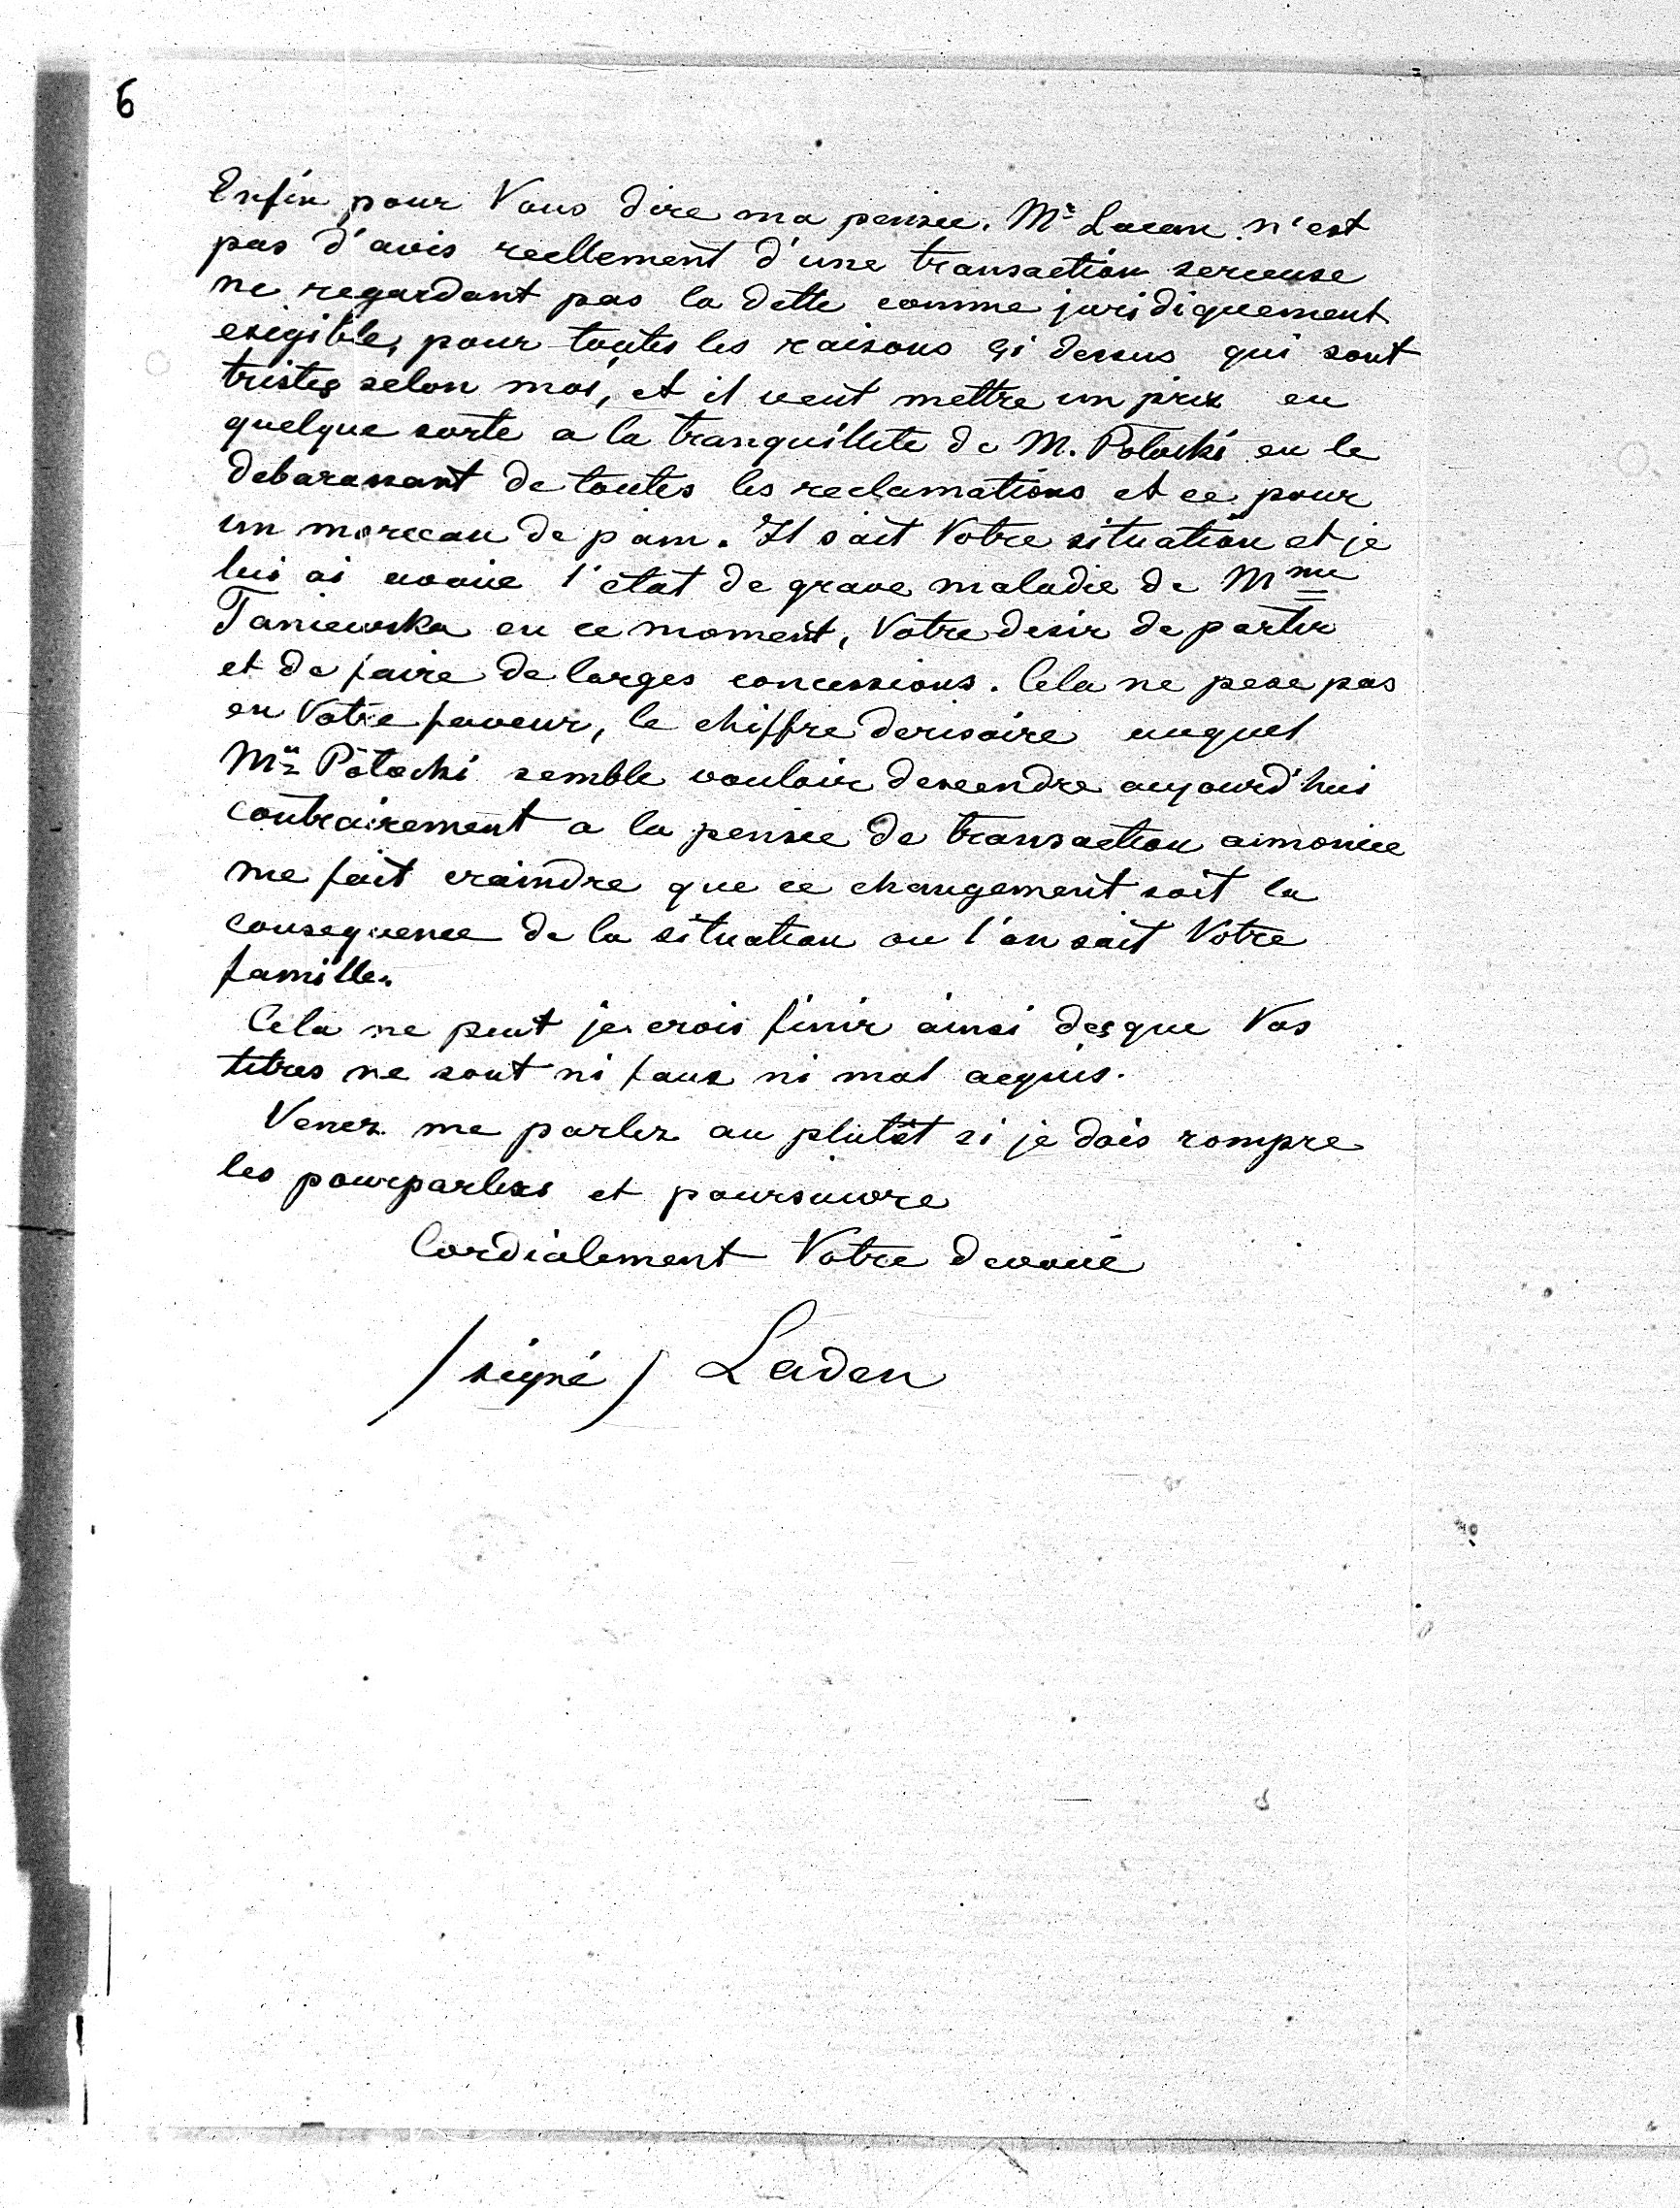 6
Enfin pour Vous dire ma pensee. Mr Lacan n'est
pas d'avis reellement d'une transaction serieuse
ne regardant pas la dette comme juridiquement
exigible, pour toutes les raisons çi dessus qui sont
tristes selon moi, et il veut mettre un prix en
quelque sorte a la tranquillite de M. Potocki en le
debarassant de toutes les reclamations et ce pour
un morceau de pain. Il sait Votre situation et je
lui ai avoué l'état de grave maladie de Mme
Taniewska en ce moment, Votre desir de partir
et de faire de larges concessions. Cela ne pese pas
en Votre faveur, le chiffre derisoire auquel
Mr Potocki semble vouloir descendre aujourd'hui
contrairement a la pensee de transaction annoncee
me fait craindre que ce changement soit la
consequence de la situation ou l'on sait Votre
famille.
Cela ne peut je crois finir ainsi desque Vos
titres ne sont ni faux ni mal acquis.
Venez me parler au plutôt si je dois rompre
les pourparlers et poursuivre
Cordialement Votre devoué
/signé/ Laden